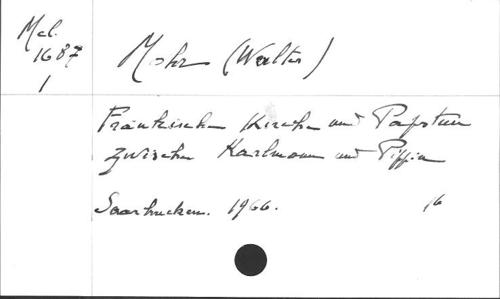 Mel.
1687
1
Mohr (Walter)
Fränkische Kirche und Papsttum
zwischen Karlmann und Pippin
Saarbrucken. 1966. 16